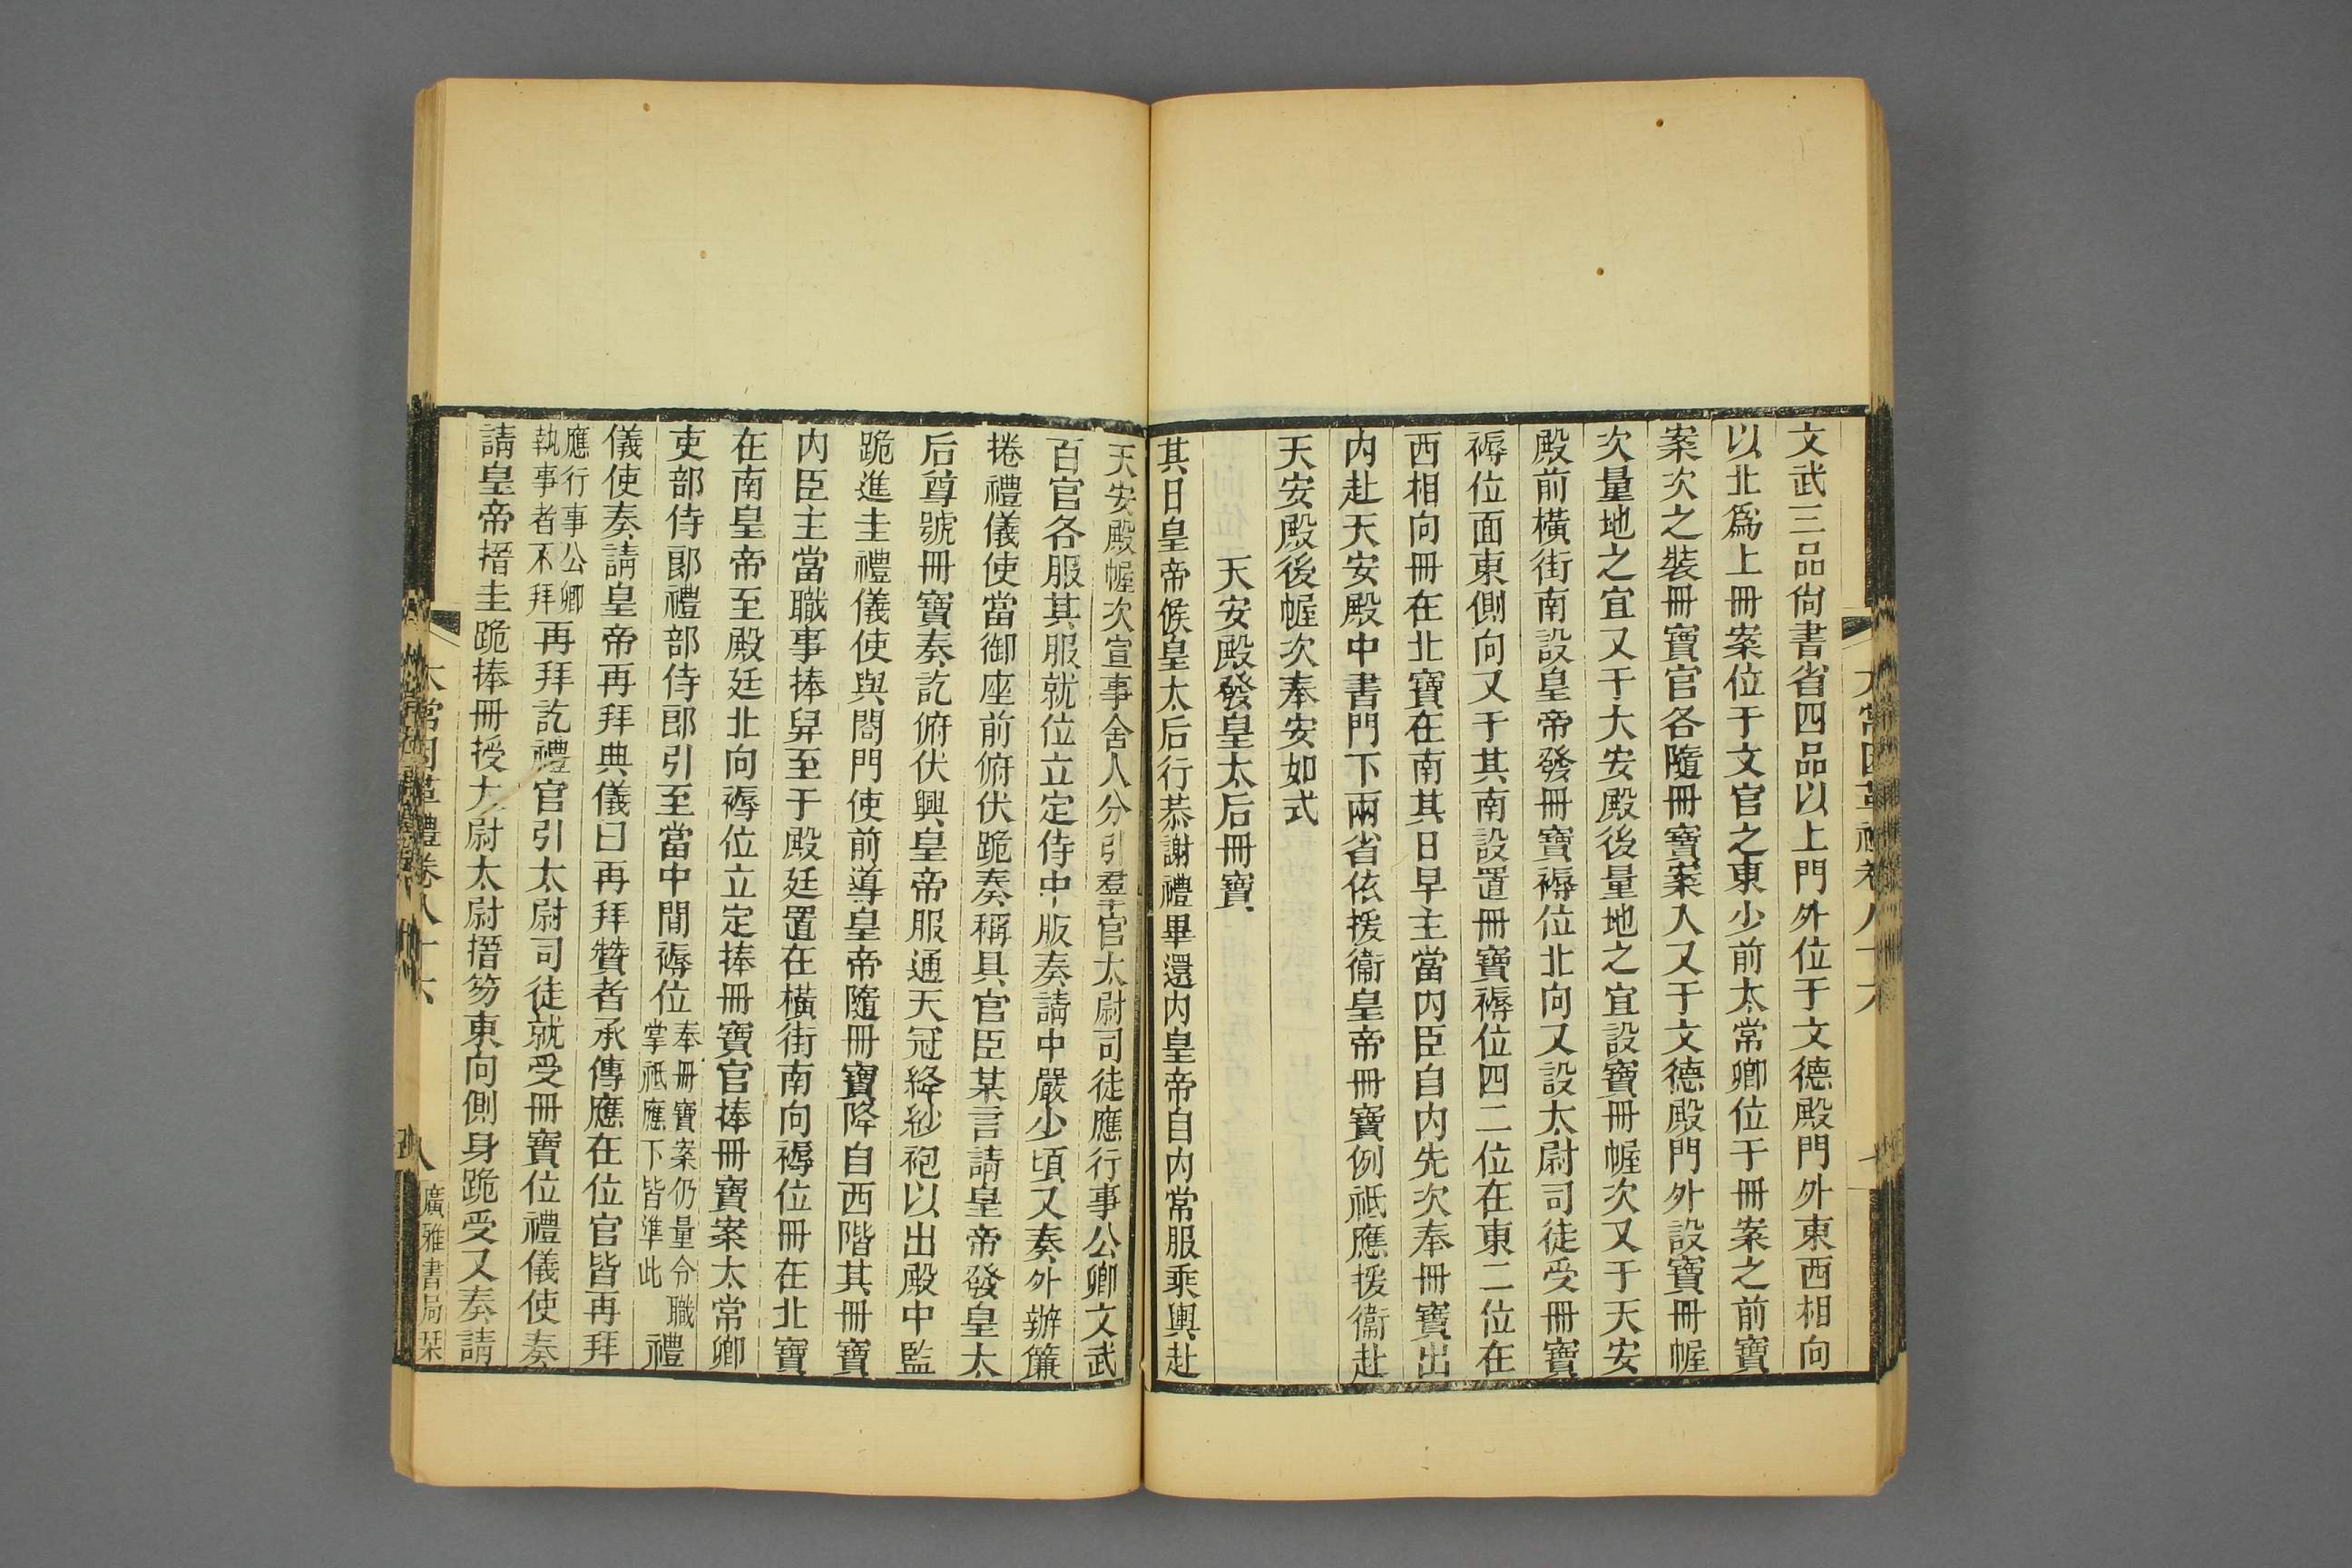 文武三品尙書省四品以上門外位于文德殿門外東西相向
以北爲上冊案位于文官之東少前太常卿位于冊案之前寶
案次之裝冊寶官各隨冊寶案入又于文德殿門外設寶冊幄
次量地之宜又于大安殿後量地之宜設寶冊幄次又于天安
殿前橫街南設皇帝發冊寶褥位北向又設太尉司徒受冊寶
褥位面東側向又于其南設置冊寶褥位四二位在東二位在
西相向冊在北寶在南其日早主當內臣自內先次奉冊寶出
內赴天安殿中書門下兩省依援衞皇帝冊寶例祗應援衞赴
天安殿後幄次奉安如式
天安殿發皇太后冊寶
其日皇帝候皇太后行恭謝禮畢還內皇帝自內常服乘輿赴
天安殿幄次宣事舍人分引羣官太尉司徒應行事公卿文武
百官各服其服就位立定侍中版奏請中嚴少頃又奏外辦簾
捲禮儀使當御座前俯伏跪奏稱具官臣某言請皇帝發皇太
后尊號冊寶奏訖俯伏興皇帝服通天冠絳紗袍以出殿中監
跪進圭禮儀使與閤門使前導皇帝隨冊寶降自西階其冊寶
內臣主當職事捧舁至于殿廷置在橫街南向褥位冊在北寶
在南皇帝至殿廷北向褥位立定捧冊寶官捧冊寶案太常卿
吏部侍郎禮部侍郎引至當中間褥位奉冊寶案仍量分職掌祗應下皆準此禮
儀使奏請皇帝再拜典儀曰再拜贊者承傳應在位官皆再拜
應行事公卿執事者不拜再拜訖禮官引太尉司徒就受冊寶位禮儀使奏
請皇帝搢圭跪捧冊授太尉太尉搢笏東向側身跪受又奏請
太常因革禮卷八十六
八
廣雅書局栞